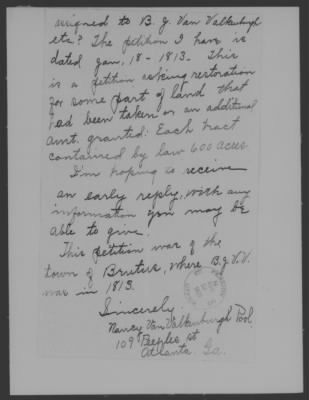 assigned to B. J. Van Valkenburgh
etc? The petition I have is
dated Jan, 18 - 1813. This
is a petition asking restoration
for some part of land that
had been taken or an additional
amt. granted. Each tract
contained by law 600 acres
I'm hoping to receive
an early reply, with any
information you may be
able to give.
This petition was of the
town of Brutus, where B.J.V.V.
was in 1813.
Sincerely,
Nancy Van Valkenburgh Pool
109 Peeples St
Atlanta, Ga.